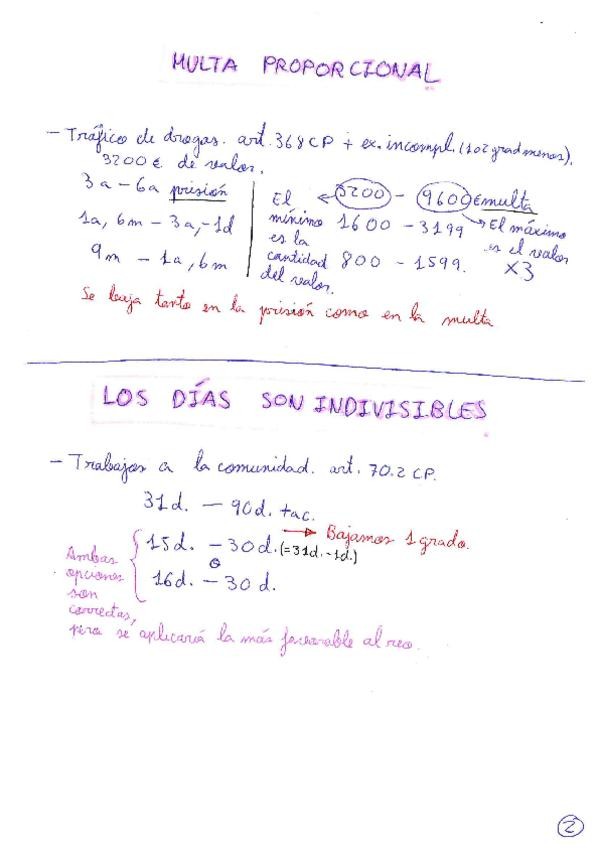 MULTA PROPORCIONAL
- Tráfico de drogas. art. 368 CP + ex. incompl. (1 o 2 grad menos).
3200 € de valor.
3a - 6a prisión
1a, 6m - 3a, -1d
9m - 1a, 6m
El mínimo es la cantidad del valor.
3200 - 9600 € multa
1600 - 3199
800 - 1599.
El máximo es el valor x3
Se baja tanto en la prisión como en la multa
LOS DÍAS SON INDIVISIBLES
- Trabajos a la comunidad. art. 70.2 CP.
31d. - 90d. tac.
15d. - 30d. (=31d.-1d.) → Bajamos 1 grado.
o
16d. - 30d.
Ambas
opciones
son
correctas,
pero se aplicará la más favorable al reo.
2